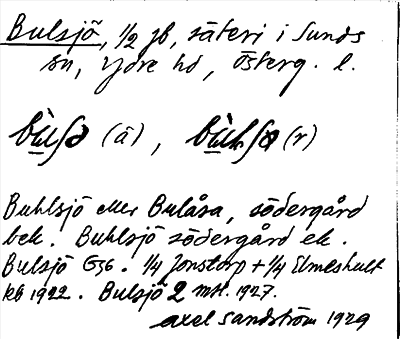 Bulsjö, 1/2 jb, säteri i Sunds
sn, Ydre hd, Österg. l.
bu̱lʃə (ā), bu̱lʃø (r)
Buhlsjö eller Bulåsa, södergård
bek. Buhlsjö södergård ek.
Bulsjö G36. 1/4 Jonstorp + 1/4 Elmeshult
kb 1922. Bulsjö 2 mtl. 1927.
Axel Sandström 1929